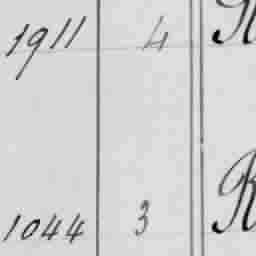 1911 4
1044 3 R